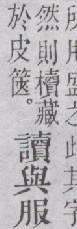 所用盛之此其字
然則櫝藏
於皮篋。讀與服